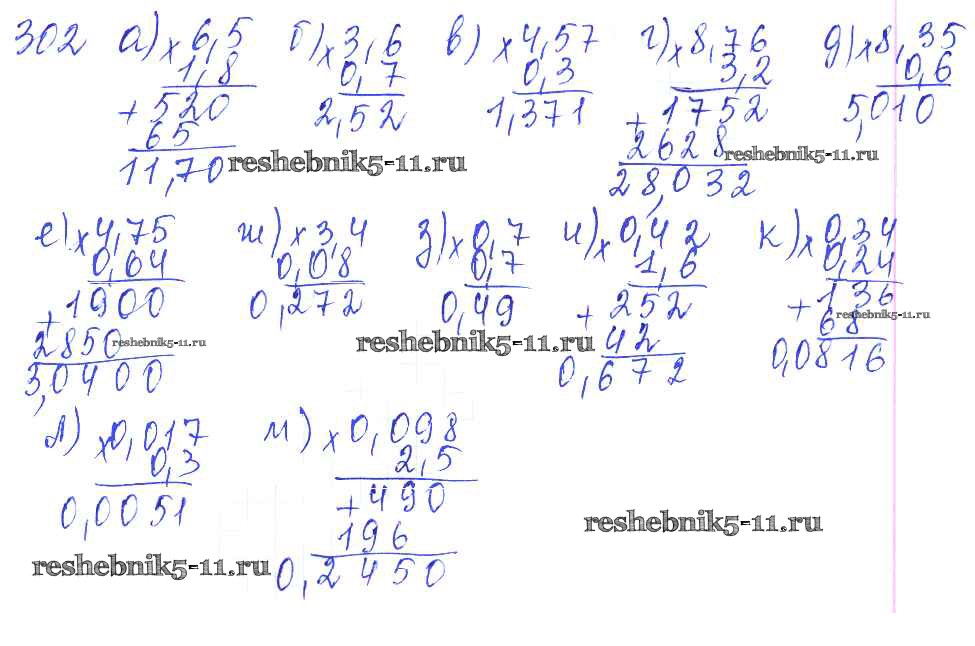 302 а) × 6,5 б) × 3,6 в) × 4,57 г) × 8,76 д) × 8,35
1,8 0,7 0,3 3,2 0,6
+ 520 2,52 1,371 + 1752 5,010
65 2628
11,70 28,032
reshebnik5-11.ru reshebnik5-11.ru
е) × 4,75 ж) × 3,4 з) × 0,7 и) × 0,42 к) × 0,34
0,64 0,08 0,7 1,6 0,24
+ 1900 0,272 0,49 + 252 + 136
2850 42 68
3,0400 0,672 0,0816
reshebnik5-11.ru reshebnik5-11.ru reshebnik5-11.ru
л) × 0,017 м) × 0,098
0,3 2,5
0,0051 + 490
196
0,2450
reshebnik5-11.ru
reshebnik5-11.ru